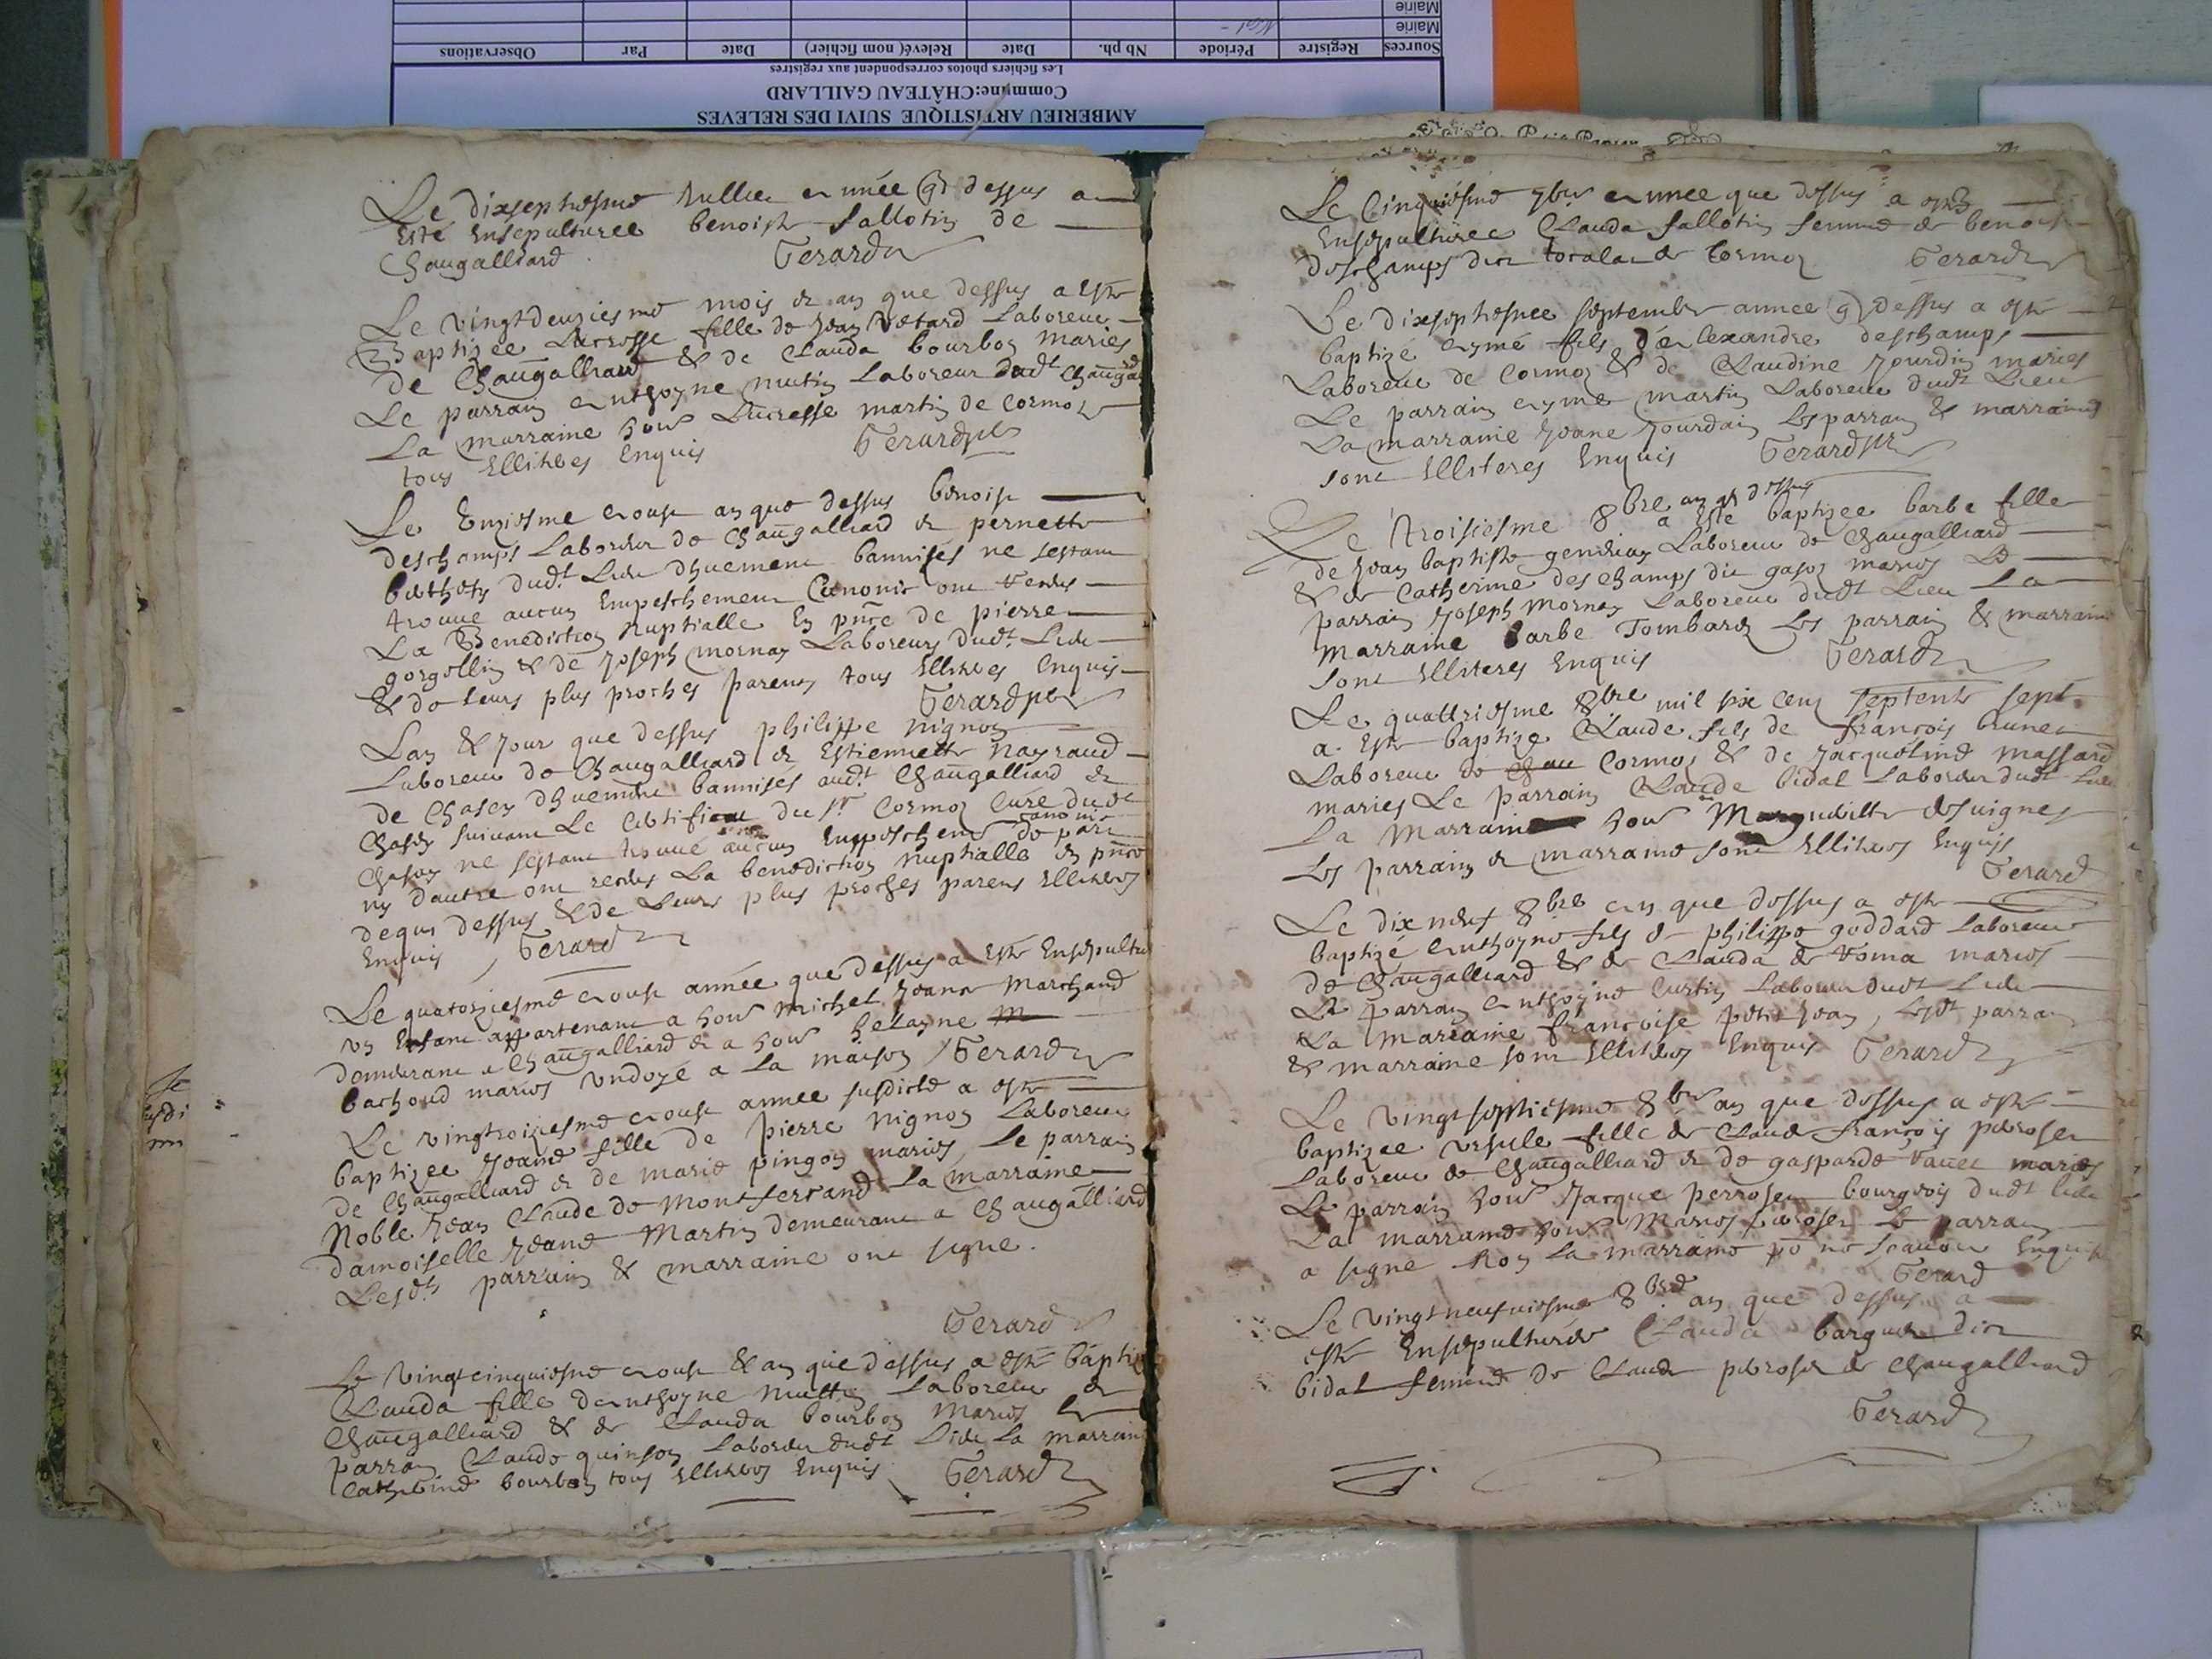 AMBERIEU ARTISTIQUE SUIVI DES RELEVES
Commune:CHÂTEAU GAILLARD
Les fichiers photos correspondent aux registres
Sources Registre Période Nb ph. Date Relevé( nom fichier) Date Par Observations
Mairie
Mairie
Le dixseptiesme Jullie année q dessus a
Esté Ensepulturee benoist fallotin de
Chaugalliard Gerard
Le vingtdeuziesme mois & an que dessus a Esté
Baptizee Lucresse fille de Jean Laboreur
de Chaugalliard & de Clauda bourbon Maries
Le parrain Anthoyne mutin Laboreur dudt
La marraine hone Lucresse martin de Cormoz
tous Illiteres Enquis Gerard
Le Onziesme Aoust an que dessus benoist
deschamps Laboreur de Chaugalliard & pernette
dudt Lieu dhuement bannises ne sestant
trouve aucun Empeschement Canonic ont
La Benediction Nuptialle En pnce de pierre
gorgollin & de Joseph mornay Laboreurs dudt Lieu
& de leurs plus proches parens tous Illiteres Enquis
Gerard
Lan & Jour que dessus philippe Nignon
Laboreur de Chaugalliard & Estiennette Nayraud
de Chasey dhuement bannises audt Chaugalliard &
Chasey suivant Le Certificat du Sr Cormoz Curé dudt
Chasey ne sestant trouvé aucun Empeschent canonic de part
ny dautre ont La benediction Nuptialle En pnce
dequi dessus & de Leurs plus proches parens Illiteres
Enquis Gerard
Le quatorziesme Aoust année que dessus a Esté
un Enfant appartenant a hone Michel Jeane Marchand
demeurant a Chaugalliard & a hone
bachoud maries Undoyé a La maison Gerard
Le vingtroiziesme Aoust annee susdicte a esté
baptizee Jeane fille de pierre Nignon Laboreur
de Chaugalliard & de marie pingon maries, Le parrain
Noble Jean Claude de Montferrand La marraine
damoiselle Jeane Martin demeurant a Chaugalliard
Lesdts parrain & marraine ont signe.
Gerard
Le vingtcinquiesme Aoust & an que dessus a esté
Clauda fille danthoyne Laboreur de
Chaugalliard & de Clauda bourbon maries Le
parrain Claude quinson Laboreur dudt Lieu La
Catherine bourbon tous Illiteres Enquis Gerard
Le Cinquiesme 7bre annee que dessus a esté
Ensepulturee Clauda fallotin femme de benoist
deschamps dict de Cormoz Gerard
Le dixseptiesme septembre annee q dessus a esté
baptizé Aymé fils dalexandre deschamps
Laboreur de Cormoz & de Claudine Jourdin maries
Le parrain Aymé martin Laboreur dudt Lieu
La marraine Jeane Jourdain Les parrain & marraine
sont Illiteres Enquis Gerard
Le Troisiesme 8bre an q dessus
a Esté baptizee barbe fille
de Jean baptiste Laboreur de Chaugalliard
& de Catherine deschamps dit maries Le
parrain Joseph Mornay Laboreur dudt Lieu La
marraine barbe Tombard Les parrain & marraine
sont Illiteres Enquis Gerard
Le quattriesme 8bre mil six cens septente sept
a Esté baptizé Claude fils de françois brunet
Laboreur de Cormoz & de Jacqueline Massard
maries Le parrain Claude bidal Laboreur dudt Lieu
La Marraine hone desvignes
Les parrain & marraine sont Illiteres Enquis
Gerard
Le dix neuf 8bre an que dessus a esté
baptizé Anthoyne fils de philippe goddard Laboreur
de Chaugalliard & de Clauda de maries
Le parrain Anthoyne Curtin Laboreur dudt Lieu
La Marraine françoise petit Jean, Lesdt parrain
& marraine sont Illiteres Enquis Gerard
Le vingtseptiesme 8bre an que dessus a esté
baptizee Ursule fille de Claude françois
Laboreur de Chaugalliard & de gasparde maries
Le parrain hone Jacque bourgeois dudt lieu
La marraine hone Le parrain
a signe Non La marraine po ne scavoir Enquis
Gerard
Le vingtneufviesme 8bre an que dessus a
esté Ensepulturée Clauda dict
bidal femme de Claude de Chaugalliard
Gerard